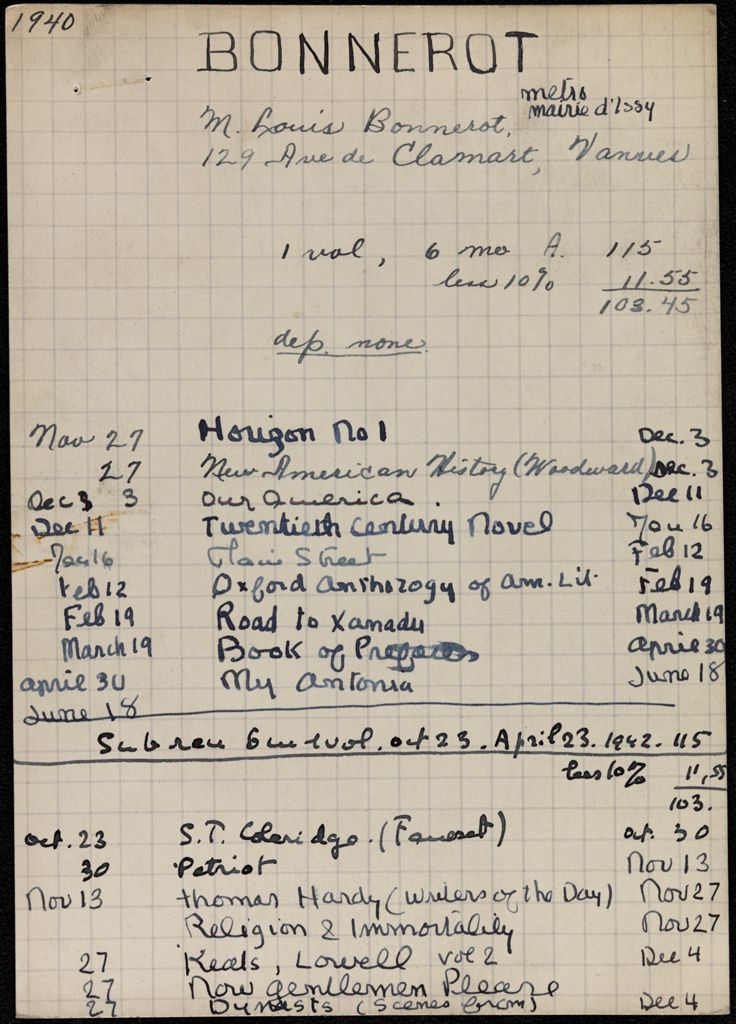 1940
BONNEROT
metro
mairie d'Issy
M. Louis Bonnerot,
129 Ave de Clamart, Vanves
1 vol, 6 mo A. 115
less 10% 11.55
103.45
dep. none
Nov 27 Horizon No 1 Dec. 3
27 New American History (Woodward) Dec. 3
Dec 3 3 Our America. Dec 11
Dec 11 Twentieth Century Novel Jan 16
Jan 16 Street Feb 12
Feb 12 Oxford Anthology of Am. Lit. Feb 19
Feb 19 Road to Xanadu March 19
March 19 Book of Prefaces April 30
April 30 My Antonia June 18
June 18
Sub ren 6 m 1 vol. oct 23. April 23. 1942. 115
less 10% 11,55
103.
oct. 23 S.T. Coleridge. (Fausset) oct. 30
30 Patriot Nov 13
Nov 13 Thomas Hardy (Writers of the Day) Nov 27
Religion & Immortality Nov 27
27 Keats, Lowell vol 2 Dec 4
27 Now Gentlemen Please
27 Dynasts (Scenes from) Dec 4